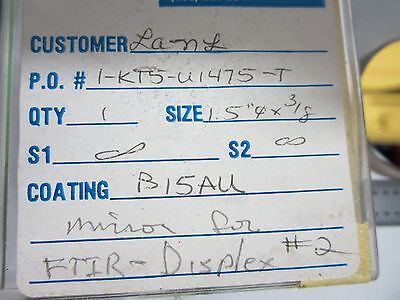 CUSTOMER LANL
P.O. # 1-KT5-U1475-T
QTY 1 SIZE 1.5"φ x 3/8
S1 ∞ S2 ∞
COATING B15AU
mirror for
FTIR-Displex #2